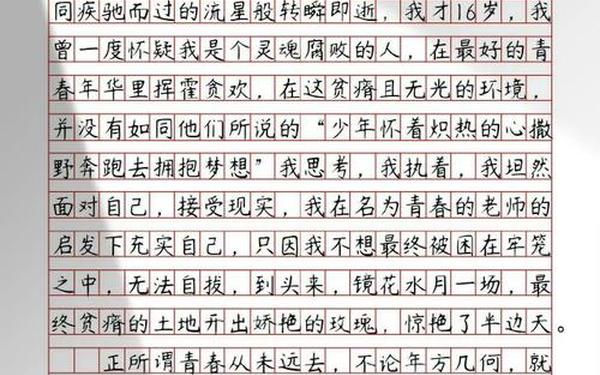 同疾驰而过的流星般转瞬即逝，我才16岁，我
曾一度怀疑我是个灵魂腐败的人，在最好的青
春年华里挥霍贪欢，在这贫瘠且无光的环境，
并没有如同他们所说的“少年怀着炽热的心撒
野奔跑去拥抱梦想”我思考，我执着，我坦然
面对自己，接受现实，我在名为青春的老师的
启发下充实自己，只因我不想最终被困在牢笼
之中，无法自拔，到头来，镜花水月一场，最
终贫瘠的土地开出娇艳的玫瑰，惊艳了半边天。
正所谓青春从未远去，不论年方几何，就